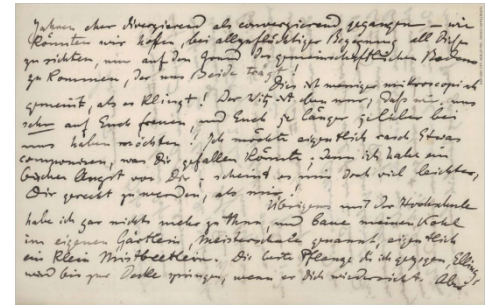 Jahren eher divergierend als convergierend gegangen – wie
könnten wir hoffen, bei allgeflüchtiger Begegnung all
zu sichten, um auf den Grund des gemeinschaftlichen Bodens
zu kommen, der uns Beide trägt!
Dies ist weniger mikroscopisch
gemeint, als es klingt! Der Witz ist eben nur, daß wir uns
sehr auf Euch freuen, und Euch je länger je lieber bei
uns haben möchten! Ich möchte eigentlich rasch Etwas
componieren, was Dir gefallen könnte; denn ich habe ein
bischen Angst vor Dir; scheint es mir doch viel leichter,
Dir gerecht zu werden, als mir!
Übrigens mit der Hochschule
habe ich gar nichts mehr zu thun, und baue meinen Kohl
im eigenen Gärtlein, Meisterschule genannt, eigentlich
ein klein Mistbeetlein. Die beste Pflanze die ich gezogen,
wird bis zur Decke springen, wenn er Dich wiedersieht. Aber